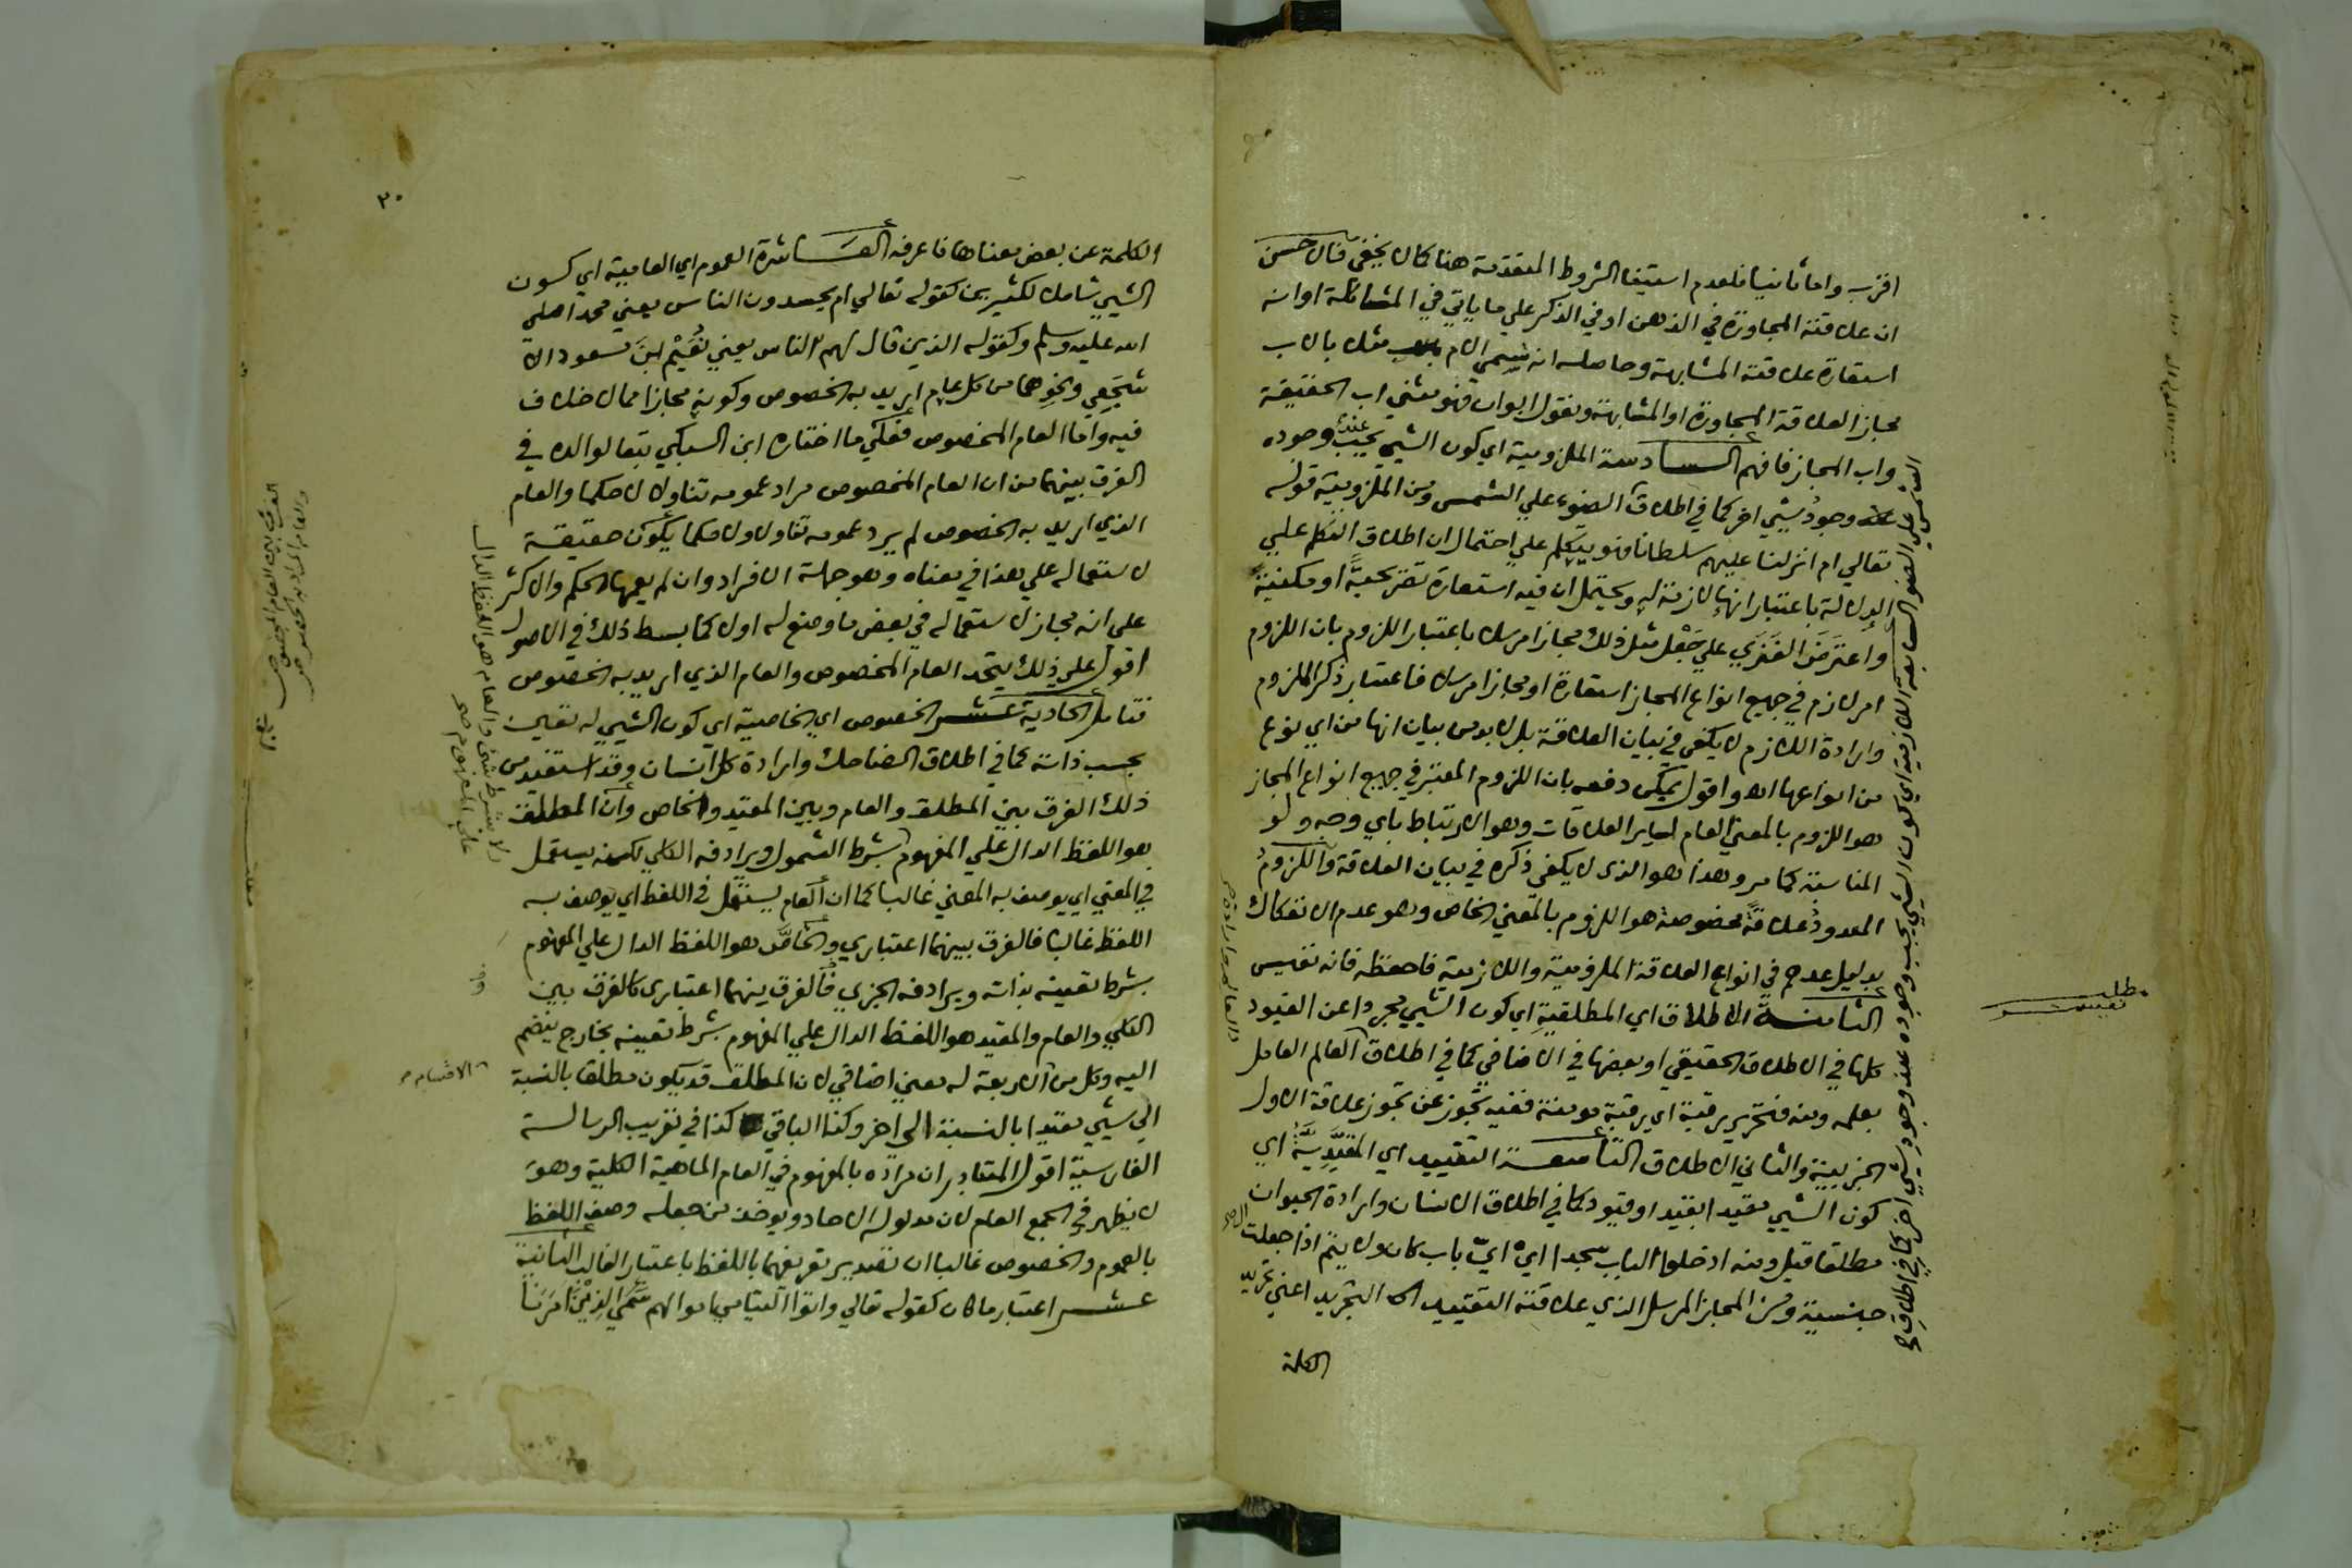 اقرب واما ثانيا فلعدم استيفا الشروط المتقدمة هنا كما لا يخفى فان حسن
ان علاقته المجاورة في الذهن او في الذكر علي ما ياتي في المشاكلة او انه
استعارة علاقته المشابهة وحاصله انه سمى الام مثلا بالاب
مجاز العلاقة المجاورة او المشابهة ونقول ابوان فهو مثنى اب الحقيقة
واب المجاز فافهم السادسة الملزومية اي كون الشيي يجب عند وجوده
وجود شيي اخر كما في اطلاق الضوء علي الشمس ومن الملزومية قوله
تعالي ام انزلنا عليهم سلطانا فهو يتكلم علي احتمال ان اطلاق التكلم علي
الدلالة باعتبار انها لازمة له ويحتمل ان فيه استعارة تصريحية او مكنية
واعترض الفنري علي جعل مثل ذلك مجازا مرسلا باعتبار اللزوم بان اللزوم
امر لازم في جميع انواع المجاز استعارة او مجازا مرسلا فاعتبار ذكر الملزوم
وارادة اللازم لا يكفي في بيان العلاقة بل لا بد من بيان انها من اي نوع
من انواعها اه واقول يمكن دفعه بان اللزوم المعتبر في جميع انواع المجاز
هو اللزوم بالمعني العام لساير العلاقات وهو الارتباط باي وجه ولو
المناسبة كما مر وهذا هو الذي لا يكفي ذكره في بيان العلاقة واللزوم
المعدود علاقة مخصوصة هو اللزوم بالمعني الخاص وهو عدم الانفكاك
بدليل عدهم في انواع العلاقة الملزومية واللازمية فاحفظه فانه نفيس
الثامنة الاطلاق اي المطلقية اي كون الشيي مجردا عن القيود
كلها في الاطلاق الحقيقي او بعضها في الاضافي كما في اطلاق العالم العامل
بعلمه ومنه فتحرير رقبة اي رقبة مومنة ففيه تجوز عن تجوز علاقة الاول
الجزيية والثاني الاطلاق التاسعة التقييد اي المقيدية اي
كون الشيي مقيدا بقيد او قيود كما في اطلاق الانسان وارادة الحيوان
مطلقا قيل ومنه ادخلوا الباب سجدا اي اي باب كان ولا يتم اذا جعلت ال
جنسية ومن المجاز المرسل الذي علاقته التقييد التجريد اعني تجريد
الكلمة
السابعة اللازمية اي كون الشيي يجب وجوده عند وجود شيي اخر كما في اطلاق
الشمس علي الضوء
مطلب
نفيس
٣٠
الكلمة عن بعض معناها فاعرفه العاشرة العموم اي العامية اي كون
الشيي شاملا لكثيرين كقوله تعالي ام يحسدون الناس يعني محمدا صلي
الله عليه وسلم وكقوله الذين قال لهم الناس يعني نعيم ابن مسعود الا
شجعي ونحوهما من كل عام اريد به الخصوص وكونه مجازا مما لا خلاف
فيه واما العام المخصوص فعلي ما اختاره ابن السبكي تبعا لوالده في
الفرق بينهما من ان العام المخصوص مراد عمومه تناولا لا حكما والعام
الذي اريد به الخصوص لم يرد عمومه تناولا ولا حكما يكون حقيقة
لاستعماله علي هذا في معناه وهو جملة الافراد وان لم يعمها الحكم والاكثر
على انه مجاز لاستعماله في بعض ما وضع له اولا كما بسط ذلك في الاصول
اقول علي ذلك يتحد العام المخصوص والعام الذي اريد به الخصوص
فتامل الحادية عشر الخصوص اي الخاصية اي كون الشيي له تعين
بحسب ذاته كما في اطلاق الضاحك وارادة كل انسان وقد استفيد من
ذلك الفرق بين المطلق والعام وبين المقيد والخاص وان المطلق
هو اللفظ الدال علي المفهوم بشرط الشمول ويرادفه الكلي لكنه يستعمل
في المعني اي يوصف به المعني غالبا كما ان العام يستعمل في اللفظ اي يوصف به
اللفظ غالبا فالفرق بينهما اعتباري والخاص هو اللفظ الدال علي المفهوم
بشرط تعينه بذاته ويرادفه الجزي فالفرق بينهما اعتباري كالفرق بين
الكلي والعام والمقيد هو اللفظ الدال علي المفهوم بشرط تعينه بخارج ينضم
اليه وكل من الاربعة له معني اضافي لان المطلق قد يكون مطلقا بالنسبة
الي شيي مقيدا بالنسبة الي اخر وكذا الباقي كذا في تقريب الرسالة
الفارسية اقول المتبادر ان مراده بالمفهوم في العام الماهية الكلية وهو
لا يظهر في الجمع العام لان مدلوله الاحاد ويوخذ من جعله وصف اللفظ
بالعموم والخصوص غالبا ان تصدير تعريفهما باللفظ باعتبار الغالب الثانية
عشر اعتبار ما كان كقوله تعالي واتوا اليتامي اموالهم سمي الذين امرنا
لا بشرط شي والعام هو اللفظ الدال
علي المفهوم صح
الاقسام
الفرق بين العام المخصوص
والعام المراد به الخصوص